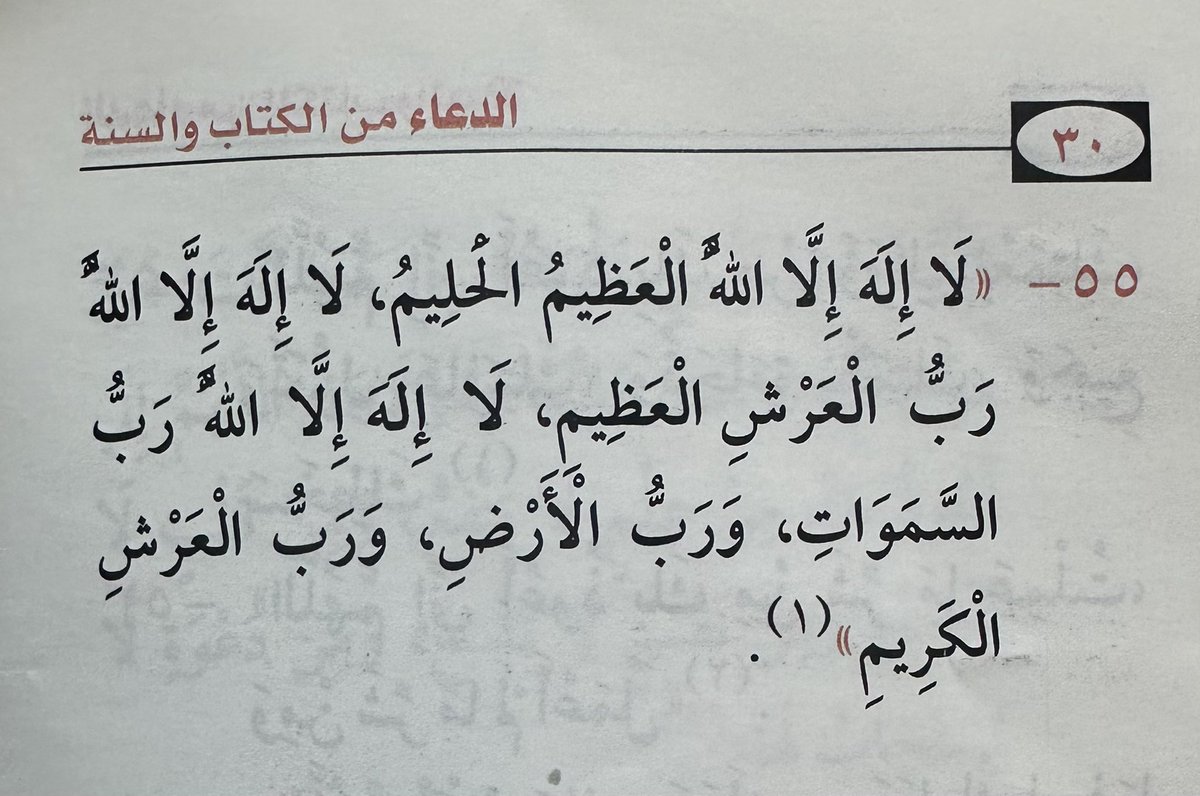 ٣٠
الدعاء من الكتاب والسنة
٥٥ - «لَا إِلَهَ إِلَّا اللهُ الْعَظِيمُ الْحَلِيمُ، لَا إِلَهَ إِلَّا اللهُ
رَبُّ الْعَرْشِ الْعَظِيمِ، لَا إِلَهَ إِلَّا اللهُ رَبُّ
السَّمَوَاتِ، وَرَبُّ الْأَرْضِ، وَرَبُّ الْعَرْشِ
الْكَرِيمِ»(١).